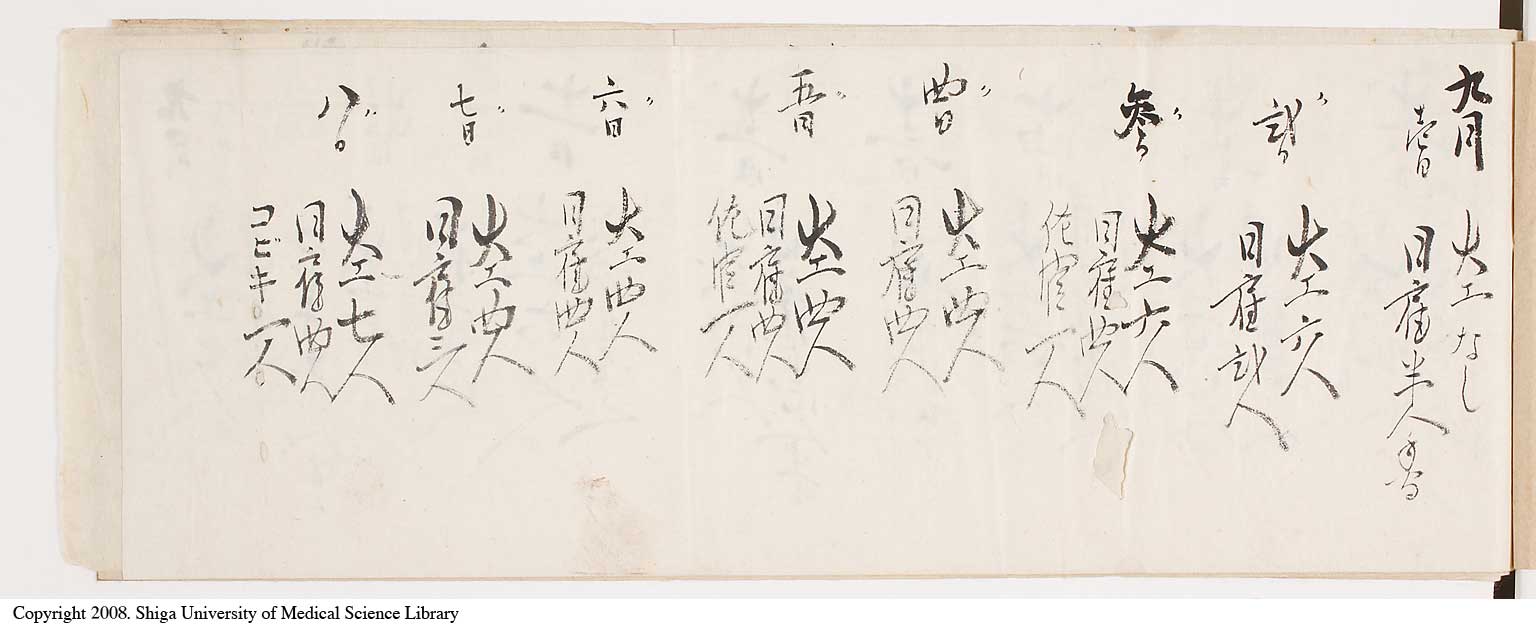 九月
壱日
大工なし
日雇半人
〃弐日
大工六人
日雇弐人
〃参日
大工六人
日雇四人
佐官一人
〃四日
大工四人
日雇四人
〃五日
大工四人
日雇四人
佐官一人
〃六日
大工四人
日雇四人
〃七日
大工四人
日雇三人
〃八日
大工七人
日雇四人
コビキ一人
Copyright 2008. Shiga University of Medical Science Library